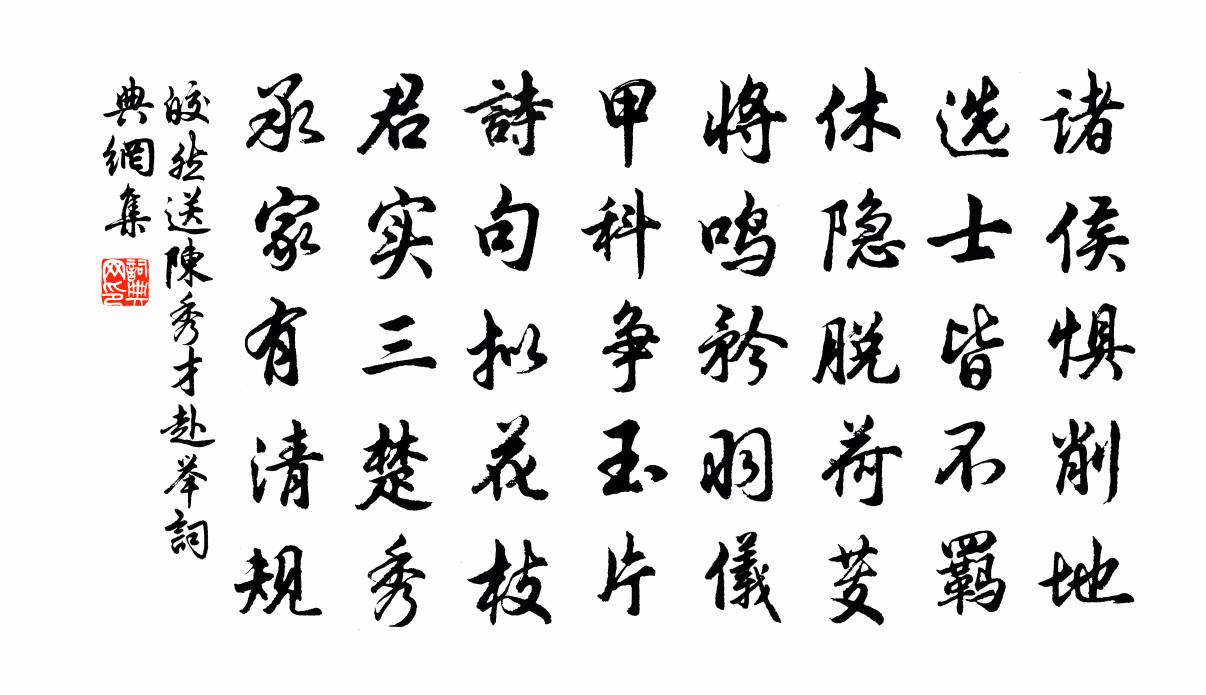 诸侯惧削地
选士皆不羁
休隐脱荷芰
将鸣矜羽儀
甲科争玉片
詩句拟花枝
君实三楚秀
承家有清规
皎然送陳秀才赴举詞
典網集
詞典网印